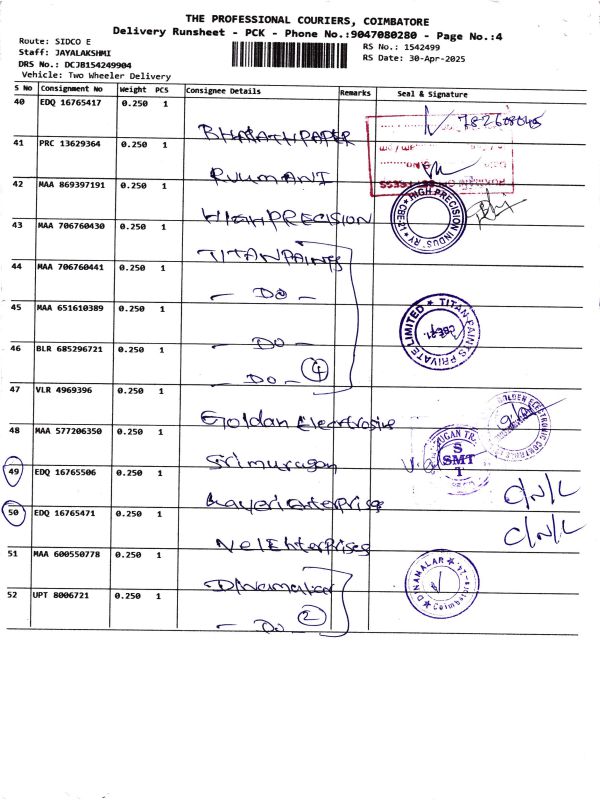 THE PROFESSIONAL COURIERS, COIMBATORE
Delivery Runsheet - PCK - Phone No.:9047080280 - Page No.:4
Route: SIDCO E
Staff: JAYALAKSHMI
DRS No.: DCJB154249904
Vehicle: Two Wheeler Delivery
RS No.: 1542499
RS Date: 30-Apr-2025
S No Consignment No Weight PCS Consignee Details Remarks Seal & Signature
40 EDQ 16765417 0.250 1 BHARATH PAPER
41 PRC 13629364 0.250 1 RUUMANI
42 MAA 869397191 0.250 1 HIGH PRECISION
HIGH PRECISION INDUSTRY CBE-21
43 MAA 706760430 0.250 1 TITAN PAINTS
44 MAA 706760441 0.250 1 - DO -
45 MAA 651610389 0.250 1 - DO -
TITAN PAINTS PRIVATE LIMITED CBE-21.
46 BLR 685296721 0.250 1 - DO - 4
47 VLR 4969396 0.250 1 Goldan Electronic
48 MAA 577206350 0.250 1 Sri murugan
SMT
49 EDQ 16765506 0.250 1 Kaveri Enterprise C/N/L
50 EDQ 16765471 0.250 1 Nel Enterprises C/N/L
51 MAA 600550778 0.250 1 Dinamalar
DINAMALAR Coimbatore
52 UPT 8006721 0.250 1 - Do - 2